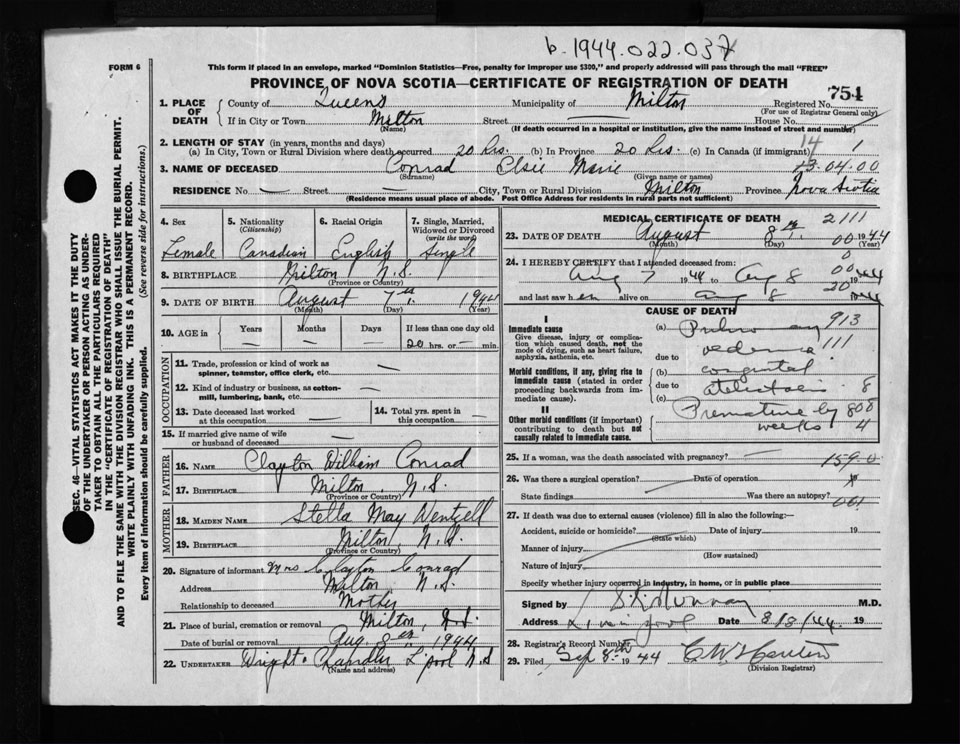 b. 1944.022.037
FORM 6
This form if placed in an envelope, marked "Dominion Statistics—Free, penalty for improper use $300," and properly addressed will pass through the mail "FREE"
PROVINCE OF NOVA SCOTIA—CERTIFICATE OF REGISTRATION OF DEATH
754
SEC. 46—VITAL STATISTICS ACT MAKES IT THE DUTY
OF THE UNDERTAKER OR PERSON ACTING AS UNDER-
TAKER TO OBTAIN ALL THE PARTICULARS REQUIRED
IN THE "CERTIFICATE OF REGISTRATION OF DEATH"
AND TO FILE THE SAME WITH THE DIVISION REGISTRAR WHO SHALL ISSUE THE BURIAL PERMIT.
WRITE PLAINLY WITH UNFADING INK. THIS IS A PERMANENT RECORD.
Every item of information should be carefully supplied. (See reverse side for instructions.)
1. PLACE OF DEATH County of Queens Municipality of Milton Registered No.
(For use of Registrar General only)
If in City or Town Milton Street — House No.
(Name) (If death occurred in a hospital or institution, give the name instead of street and number)
2. LENGTH OF STAY (in years, months and days) 14
(a) In City, Town or Rural Division where death occurred 20 hrs. (b) In Province 20 hrs. (c) In Canada (if immigrant) 1
3. NAME OF DECEASED Conrad Elsie Marie 3.04.00
(Surname) (Given name or names)
RESIDENCE No. — Street — City, Town or Rural Division Milton Province Nova Scotia
(Residence means usual place of abode. Post Office Address for residents in rural parts not sufficient)
4. Sex 5. Nationality (Citizenship) 6. Racial Origin 7. Single, Married, Widowed or Divorced (write the word)
Female Canadian English Single
8. BIRTHPLACE Milton N.S.
(Province or Country)
9. DATE OF BIRTH August 7th 1944
(Month) (Day) (Year)
10. AGE in Years Months Days If less than one day old
— — — 20 hrs. or — min.
OCCUPATION
11. Trade, profession or kind of work as spinner, teamster, office clerk, etc. —
12. Kind of industry or business, as cotton-mill, lumbering, bank, etc. —
13. Date deceased last worked at this occupation — 14. Total yrs. spent in this occupation —
15. If married give name of wife or husband of deceased —
FATHER
16. NAME Clayton William Conrad
17. BIRTHPLACE Milton, N.S.
(Province or Country)
MOTHER
18. MAIDEN NAME Stella May Wentzell
19. BIRTHPLACE Milton N.S.
(Province or Country)
20. Signature of informant Mrs Clayton Conrad
Address Milton N.S.
Relationship to deceased Mother
21. Place of burial, cremation or removal Milton, N.S.
Date of burial or removal Aug. 8th 1944
22. UNDERTAKER Wright & Chandler L'pool N.S
(Name and address)
MEDICAL CERTIFICATE OF DEATH 2111
23. DATE OF DEATH August 8th 1944
(Month) (Day) 00 (Year)
24. I HEREBY CERTIFY that I attended deceased from: 0
Aug 7 1944 to Aug 8 00 1944
and last saw her alive on Aug 8 20
CAUSE OF DEATH
I
Immediate cause
Give disease, injury or complication which caused death, not the mode of dying, such as heart failure, asphyxia, asthenia, etc.
(a) Pulmonary 913
due to oedema 111
Morbid conditions, if any, giving rise to immediate cause (stated in order proceeding backwards from immediate cause).
(b) congenital
due to atelectasis 8
(c) Premature by 808
weeks 4
II
Other morbid conditions (if important) contributing to death but not causally related to immediate cause.
25. If a woman, was the death associated with pregnancy? — 159.0
26. Was there a surgical operation? Date of operation x
State findings Was there an autopsy? 001
27. If death was due to external causes (violence) fill in also the following:—
Accident, suicide or homicide? Date of injury 19
(State which)
Manner of injury
(How sustained)
Nature of injury
Specify whether injury occurred in industry, in home, or in public place
Signed by Murray M.D.
Address Liverpool Date 8/8/44 19
28. Registrar's Record Number
29. Filed Sep 8th 1944
(Division Registrar)